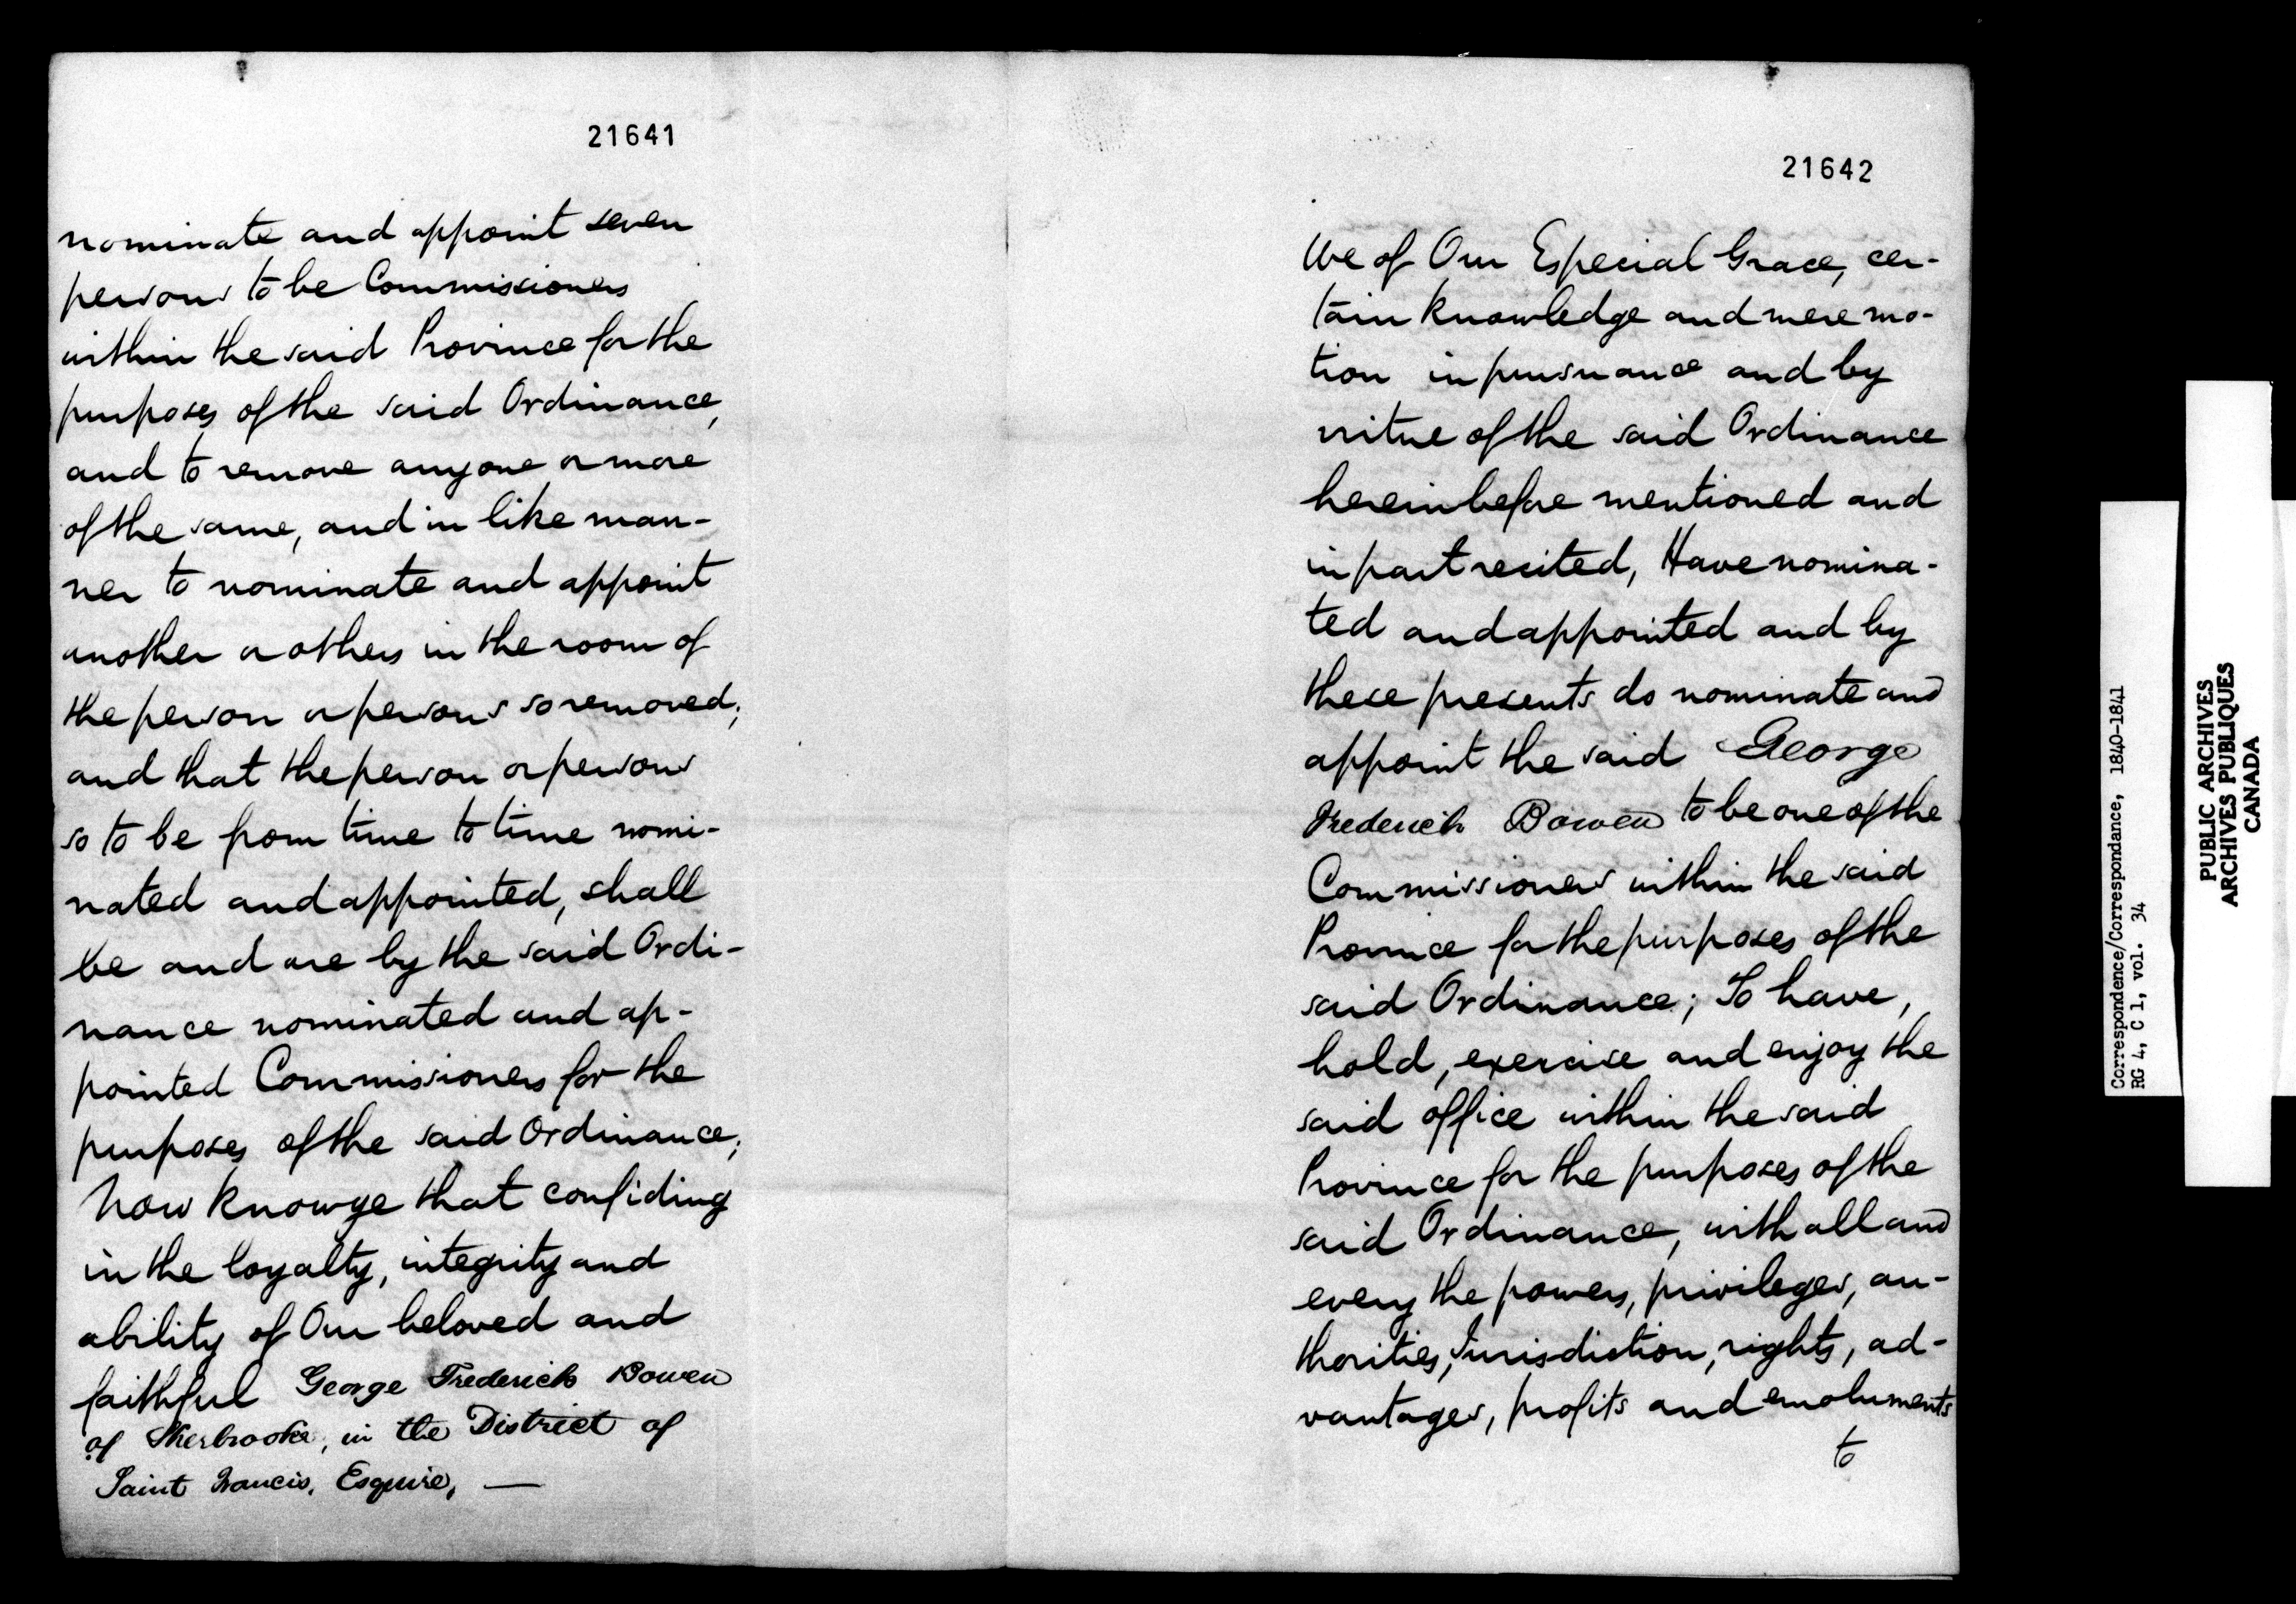 21641
nominate and appoint seven
persons to be Commissioners
within the said Province for the
purposes of the said Ordinance,
and to remove any one or more
of the same, and in like man-
ner to nominate and appoint
another or others in the room of
the person or persons so removed;
and that the person or persons
so to be from time to time nomi-
nated and appointed, shall
be and are by the said Ordi-
nance nominated and ap-
pointed Commissioners for the
purposes of the said Ordinance;
Now know ye that confiding
in the loyalty, integrity and
ability of Our beloved and
faithful George Frederick Bowen
of Sherbrooke, in the District of
Saint Francis, Esquire, —
21642
We of Our Especial Grace, cer-
tain knowledge and mere mo-
tion in pursuance and by
virtue of the said Ordinance
hereinbefore mentioned and
in part recited, Have nomina-
ted and appointed and by
these presents do nominate and
appoint the said George
Frederick Bowen to be one of the
Commissioners within the said
Province for the purposes of the
said Ordinance; To have,
hold, exercise and enjoy the
said office within the said
Province for the purposes of the
said Ordinance, with all and
every the powers, privileges, au-
thorities, Jurisdiction, rights, ad-
vantages, profits and emoluments
to
Correspondence/Correspondance, 1840-1841
RG 4, C 1, vol. 34
PUBLIC ARCHIVES
ARCHIVES PUBLIQUES
CANADA